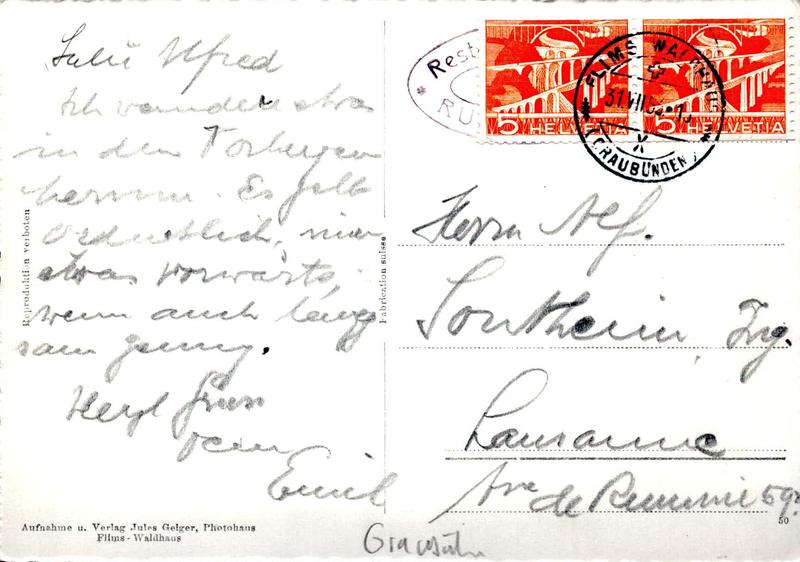 Salü Alfred
Ich wandere etwas
in den Vorbergen
herum. Es geht
ordentlich, nur
etwas vorwärts,
wenn auch lang
sam genug.
Herzl. Gruss
Dein
Emil
Reproduktion verboten
Fabrication suisse
Aufnahme u. Verlag Jules Geiger, Photohaus
Flims-Waldhaus
Rest
RU
5 HELVETIA
5 HELVETIA
FLIMS WALDHAUS
31.VII.
(GRAUBÜNDEN)
Herrn Alf.
Sontheim, Ing.
Lausanne
Ave de Rumine 59
50